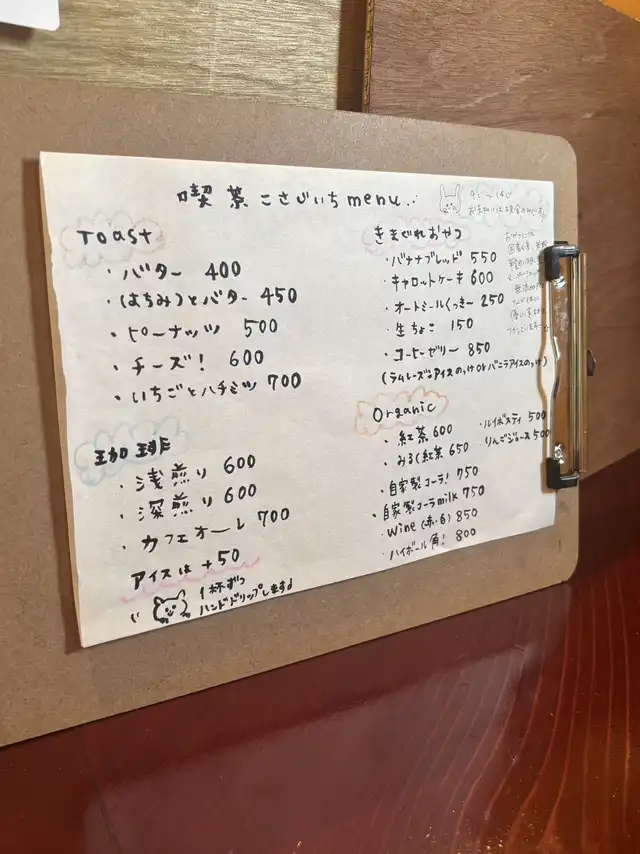 喫茶 こさじいち menu..
9じ〜14じ
お支払いは現金のみです
Toast
・バター 400
・(はちみ)とバター 450
・ピーナッツ 500
・チーズ! 600
・いちごとハチミツ 700
珈琲
・浅煎り 600
・深煎り 600
・カフェオーレ 700
アイスは +50
1杯ずつ
ハンドドリップします♩
きまぐれおやつ
・バナナブレッド 550
・キャロットケーキ 600
・オートミールくっきー 250
・生ちょこ 150
・コーヒーゼリー 850
(ラムレーズンアイスのっけ or バニラアイスのっけ)
Organic
・紅茶 600
・みるく紅茶 650
・自家製コーラ! 750
・自家製コーラmilk 750
・Wine (赤・白) 850
・ハイボール角! 800
・ルイボスティ 500
・りんごジュース 500